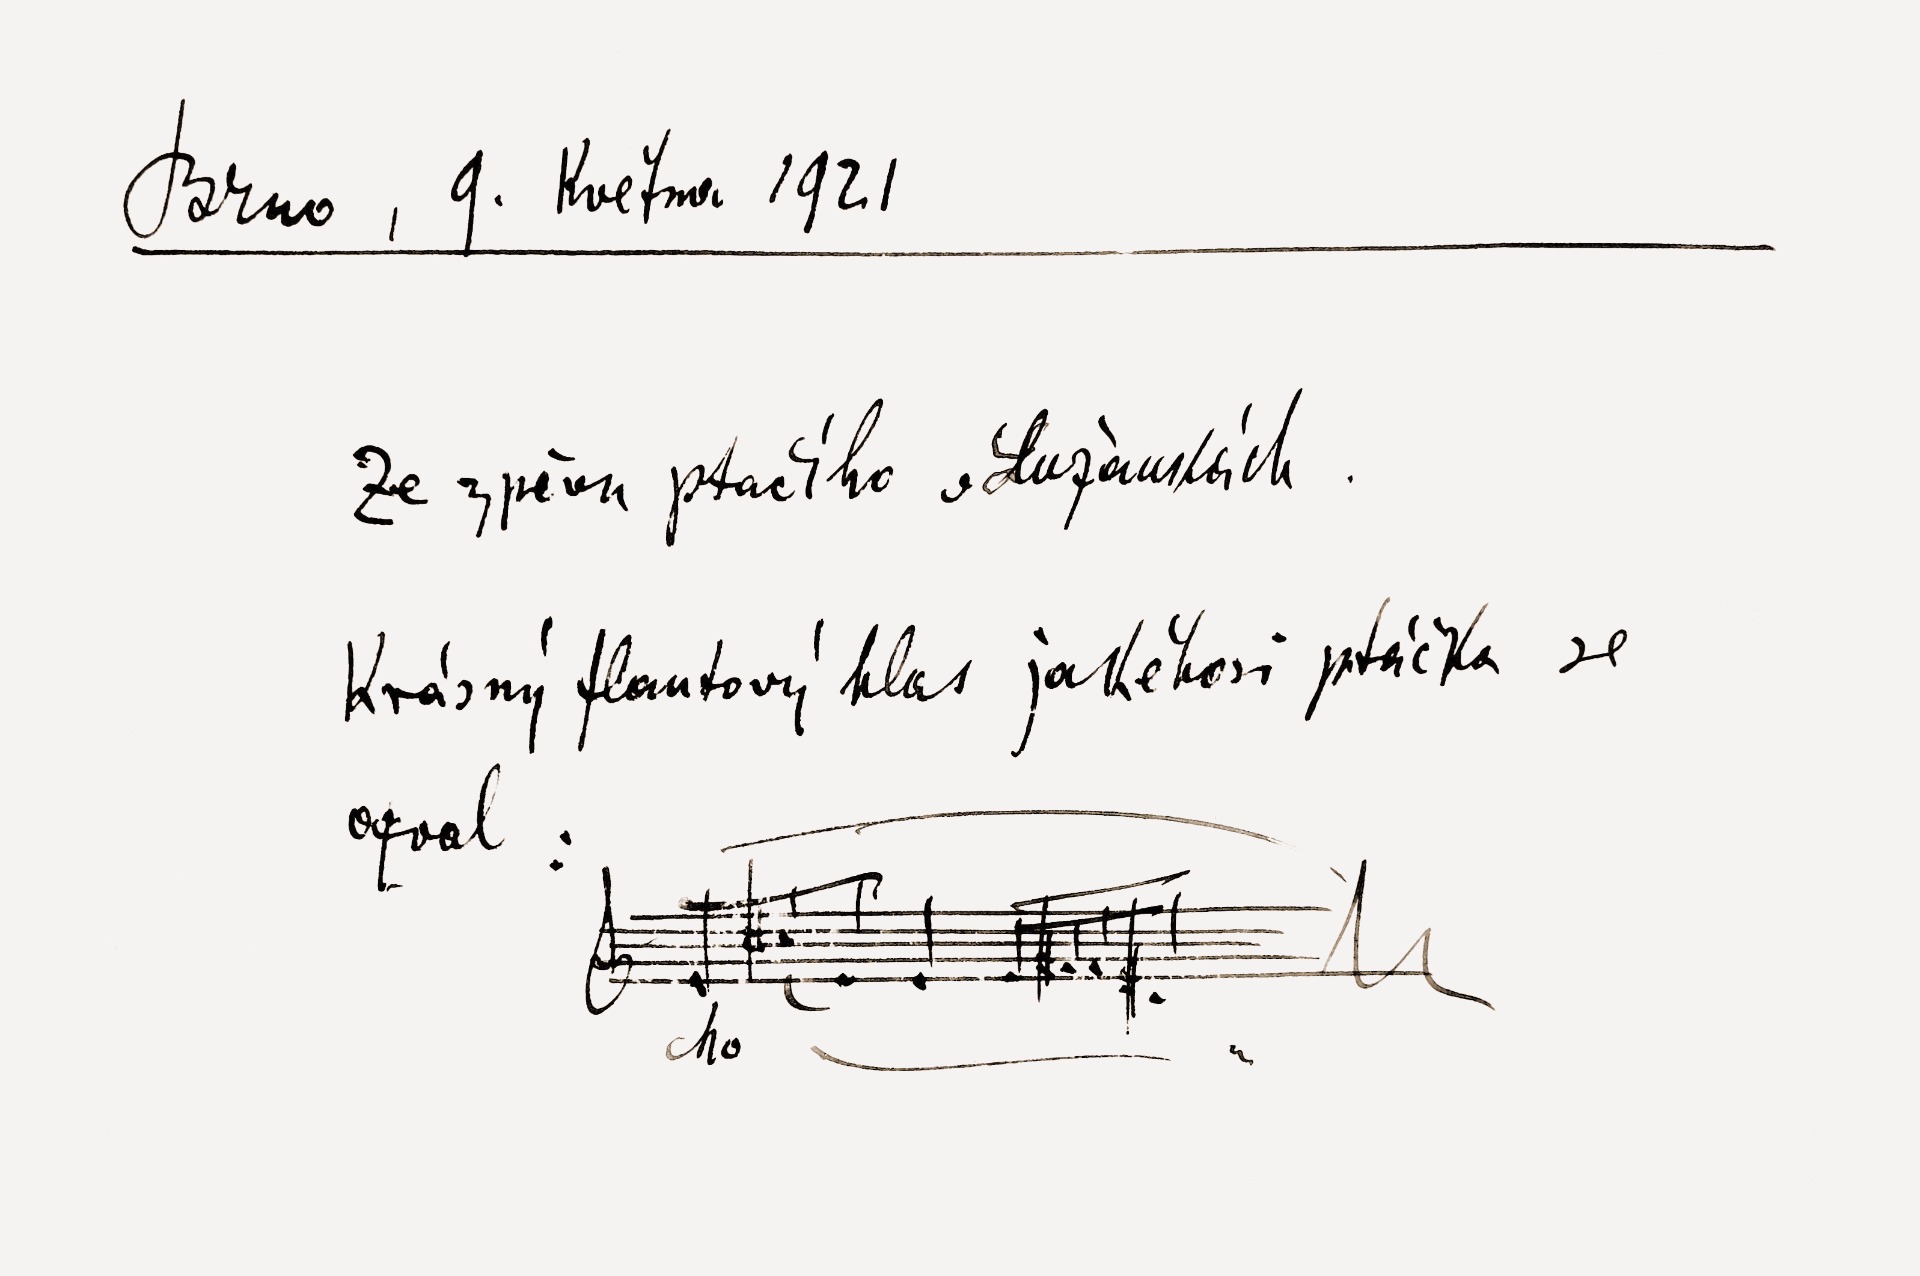 Brno, 9. Května 1921
Ze zpěvu ptačího v Lužánkách.
Krásný flautový hlas jakéhosi ptáčka se
ozval :
cho u